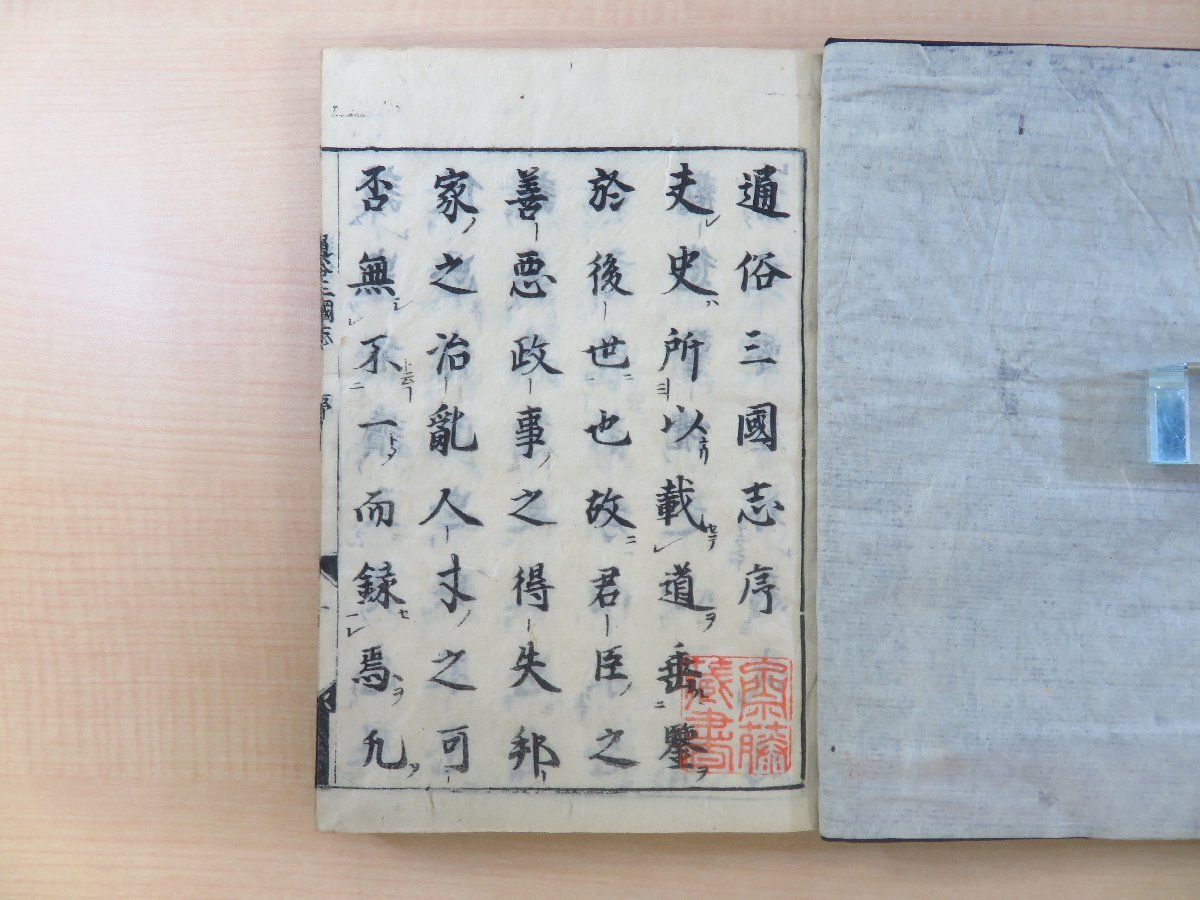 通俗三國志序
夫史所以載道垂鑒
於後世也故君臣之
善惡政事之得失邦
家之治亂人才之可
否無不一而録焉凡
齋藤
藏書